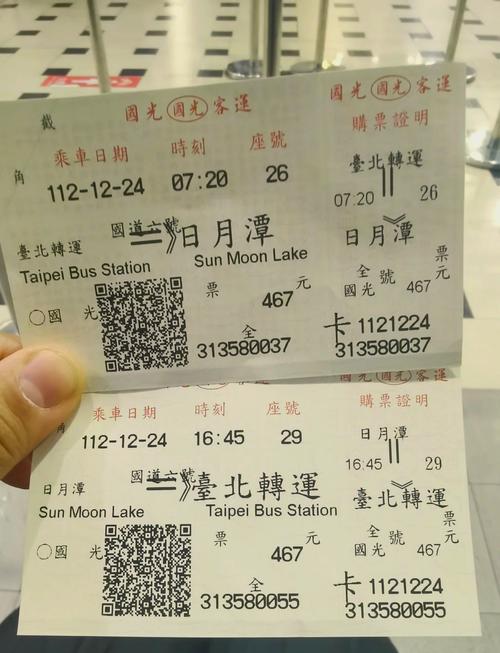 截
角
國光 國光 客運
乘車日期 時刻 座號
112-12-24 07:20 26
國道六號
臺北轉運 日月潭
Taipei Bus Station Sun Moon Lake
票 467 元
○國 光
全
313580037
國光 國光 客運
購票證明
臺北轉運
07:20 26
日月潭
全 號 票
國光 467 元
卡 1121224
313580037
角
乘車日期 時刻 座號
112-12-24 16:45 29
國道六號
日月潭 臺北轉運
Sun Moon Lake Taipei Bus Station
○國 光 票 467 元
全
313580055
國光 國光 客運
購票證明
日月潭
16:45 29
臺北轉運
全 號 票
國光 467 元
卡 1121224
313580055